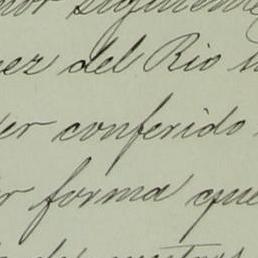 siguiente
ez del Rio
er conferido
r forma que